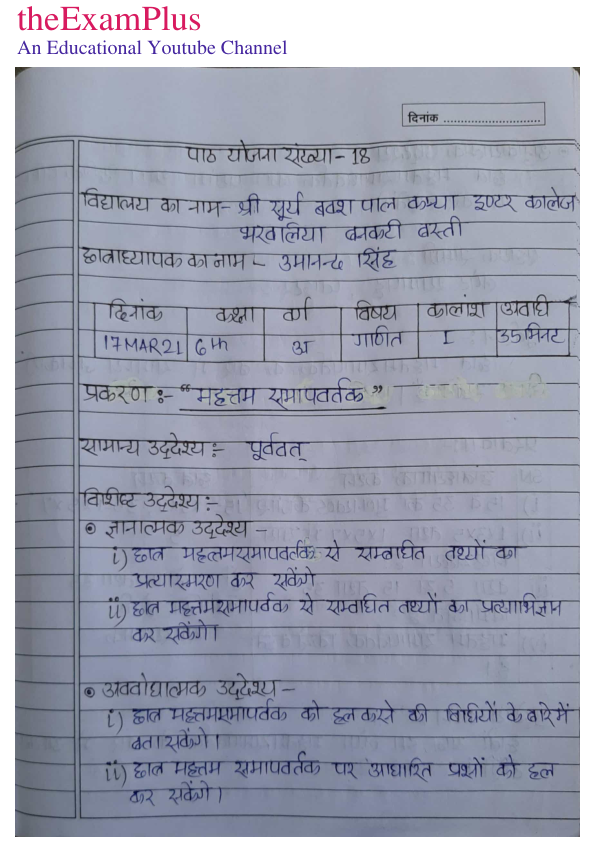 theExamPlus
An Educational Youtube Channel
दिनांक ............................
पाठ योजना संख्या - 18
विद्यालय का नाम - श्री सूर्य बक्श पाल कन्या इण्टर कालेज
भरवलिया बनकटी बस्ती
छात्राध्यापक का नाम - उमानन्द सिंह
दिनांक कक्षा वर्ग विषय कालांश अवधि
17 MAR 21 6th अ गणित I 35 मिनट
प्रकरण :- "महत्तम समापवर्तक"
सामान्य उद्देश्य :- पूर्ववत्
विशिष्ट उद्देश्य :-
⊙ ज्ञानात्मक उद्देश्य -
i) छात्र महत्तमसमापवर्तक से सम्बंधित तथ्यों का
प्रत्यास्मरण कर सकेंगे
ii) छात्र महत्तमसमापर्वक से सम्बंधित तथ्यों का प्रत्याभिज्ञान
कर सकेंगे।
⊙ अवबोधात्मक उद्देश्य -
i) छात्र महत्तमसमापर्वक को हल करने की विधियों के बारे में
बता सकेंगे।
ii) छात्र महत्तम समापवर्तक पर आधारित प्रश्नों को हल
कर सकेंगे।